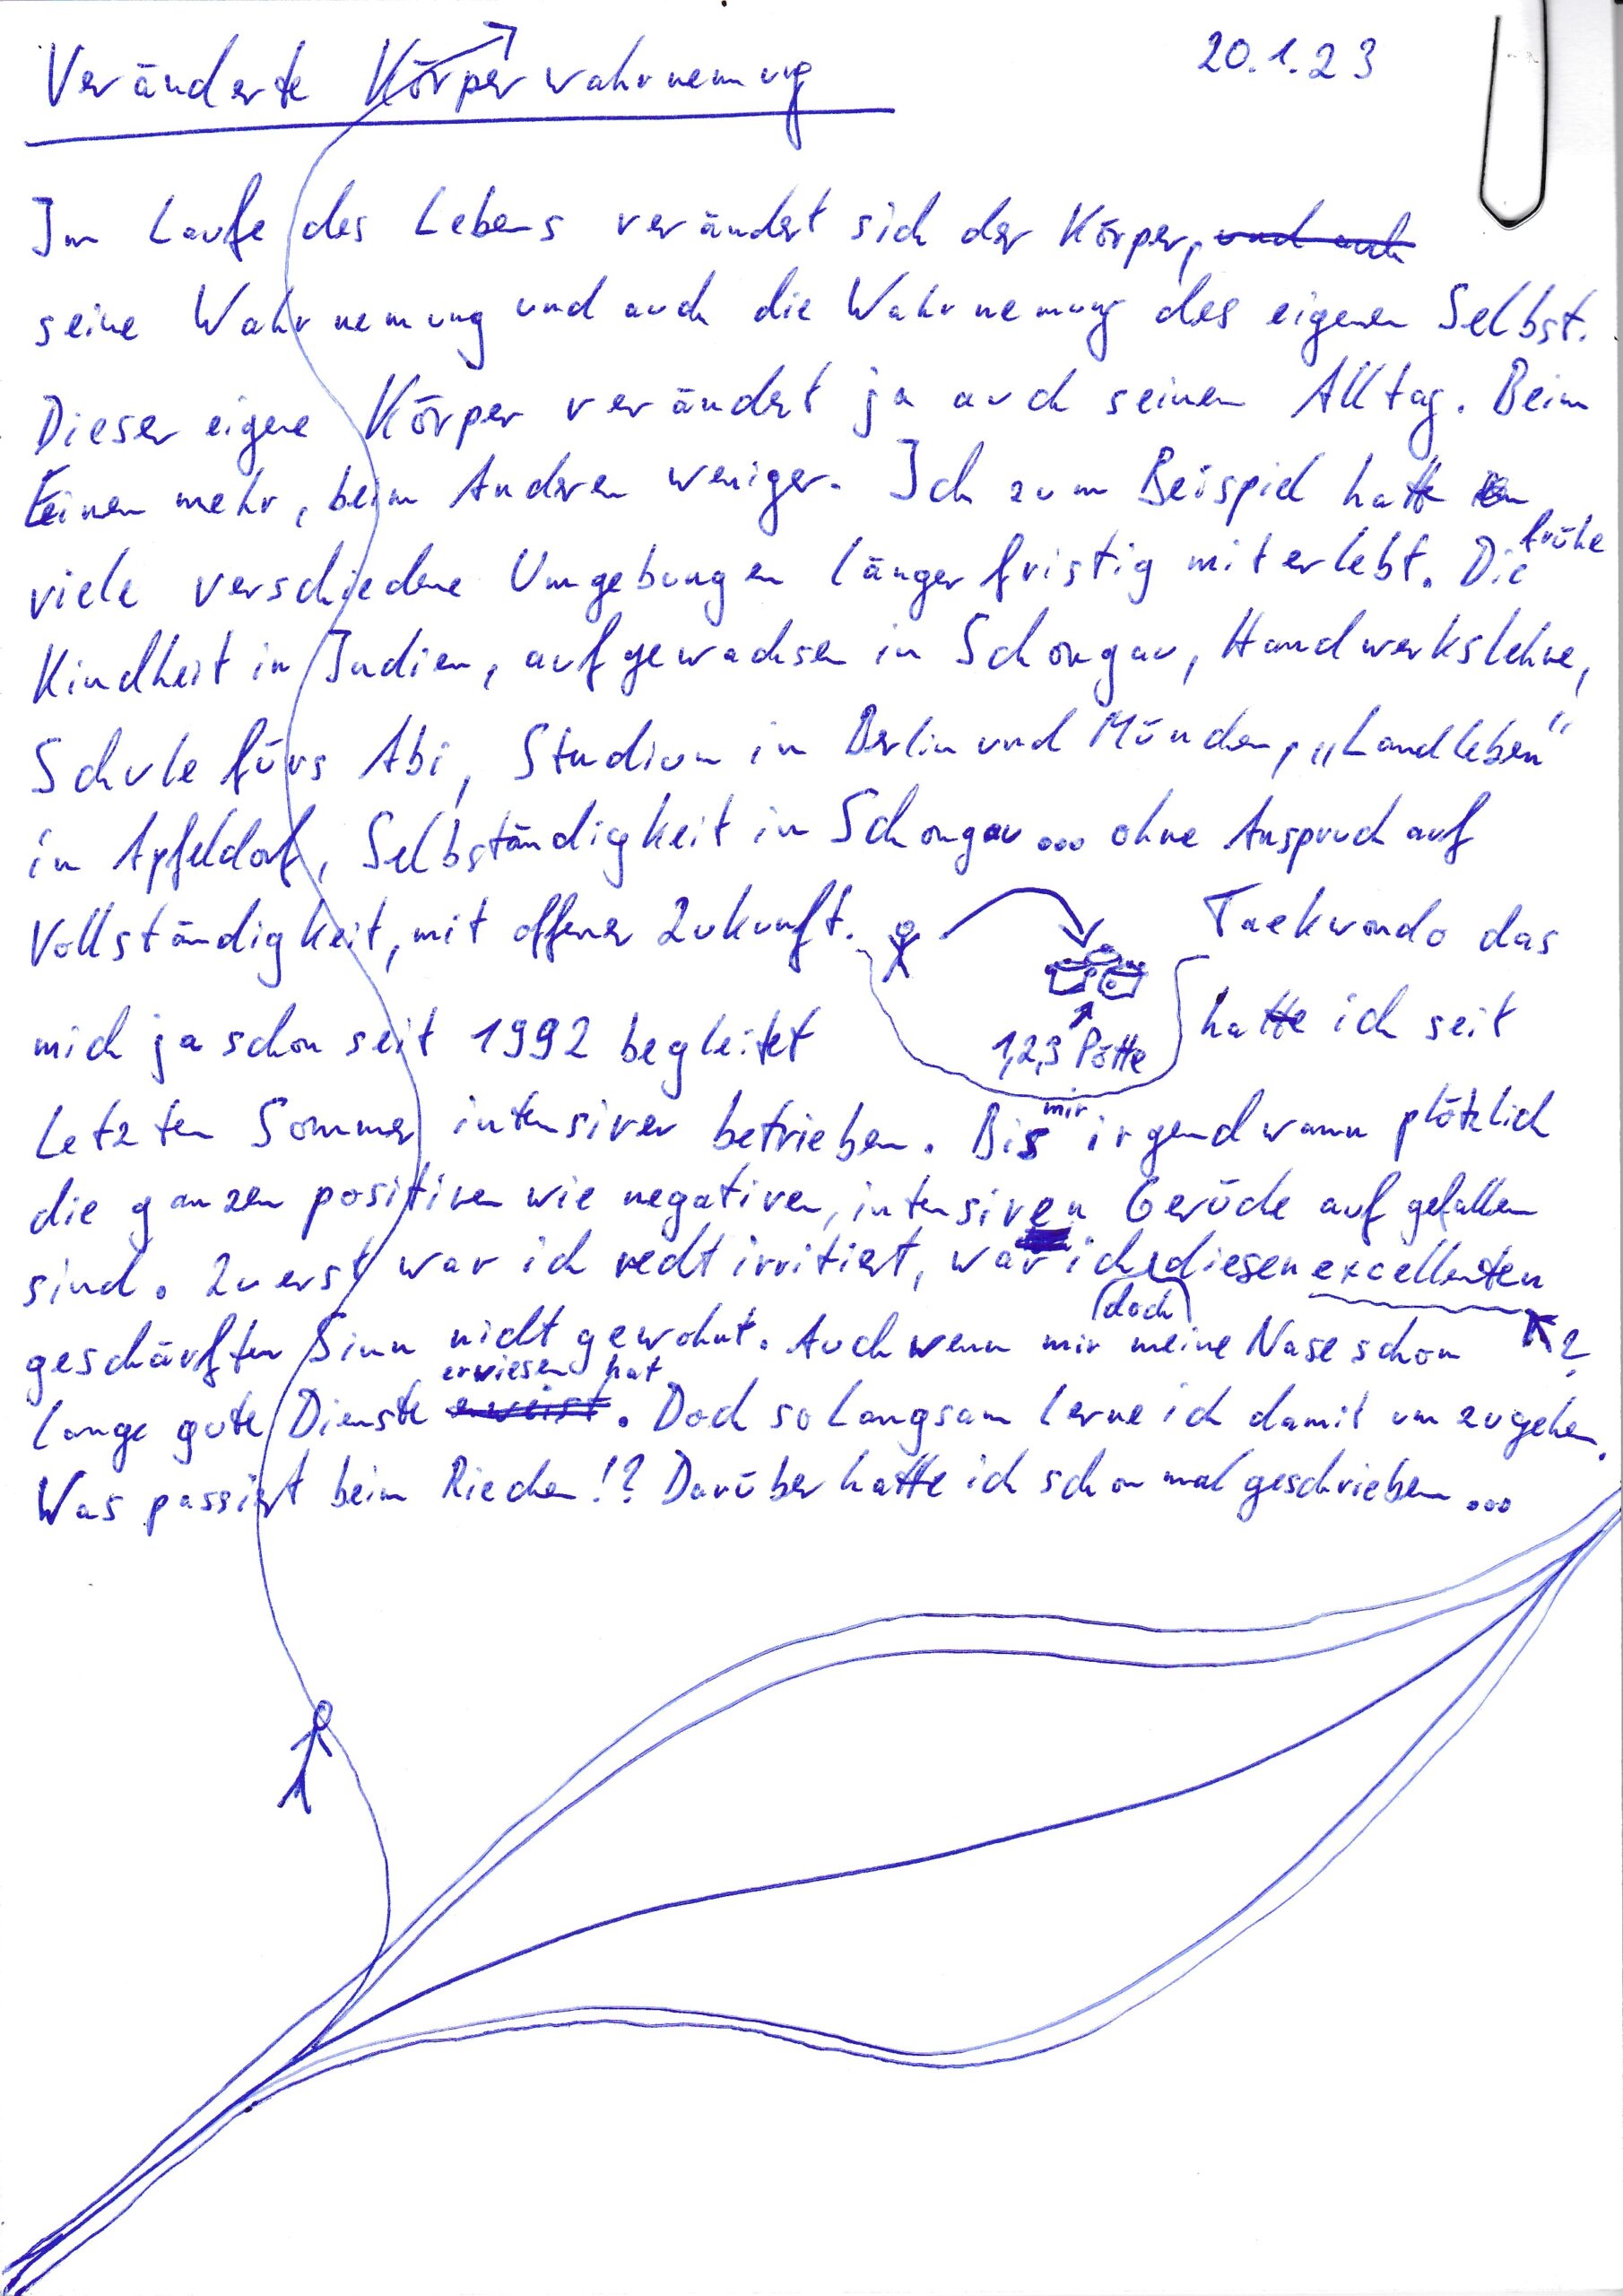 Veränderte Körperwahrnemung 20.1.23
Im Laufe des Lebens verändert sich der Körper, und auch
seine Wahrnemung und auch die Wahrnemung des eigenen Selbst.
Dieser eigene Körper verändert ja auch seinen Alltag. Beim
Einen mehr, beim Anderen weniger. Ich zum Beispiel hatte
viele verschiedene Umgebungen längerfristig miterlebt. Die frühe
Kindheit in Indien, aufgewachsen in Schongau, Handwerkslehre,
Schule fürs Abi, Studium in Berlin und München, „Landleben“
in Apfeldorf, Selbständigkeit in Schongau... ohne Anspruch auf
Vollständigkeit, mit offener Zukunft. Taekwondo das
mich ja schon seit 1992 begleitet hatte ich seit
1,2,3 Pötte
letzten Sommer intensiver betrieben. Bis mir irgendwann plötzlich
die ganzen positiven wie negativen, intensiven Gerüche aufgefallen
sind. Zuerst war ich recht irritiert, war ich diesen excellenten
geschärften Sinn nicht gewohnt. Auch wenn mir (doch) meine Nase schon ?
lange gute Dienste erweist erwiesen hat. Doch so langsam lerne ich damit umzugehen.
Was passiert beim Riechen!? Darüber hatte ich schon mal geschrieben...